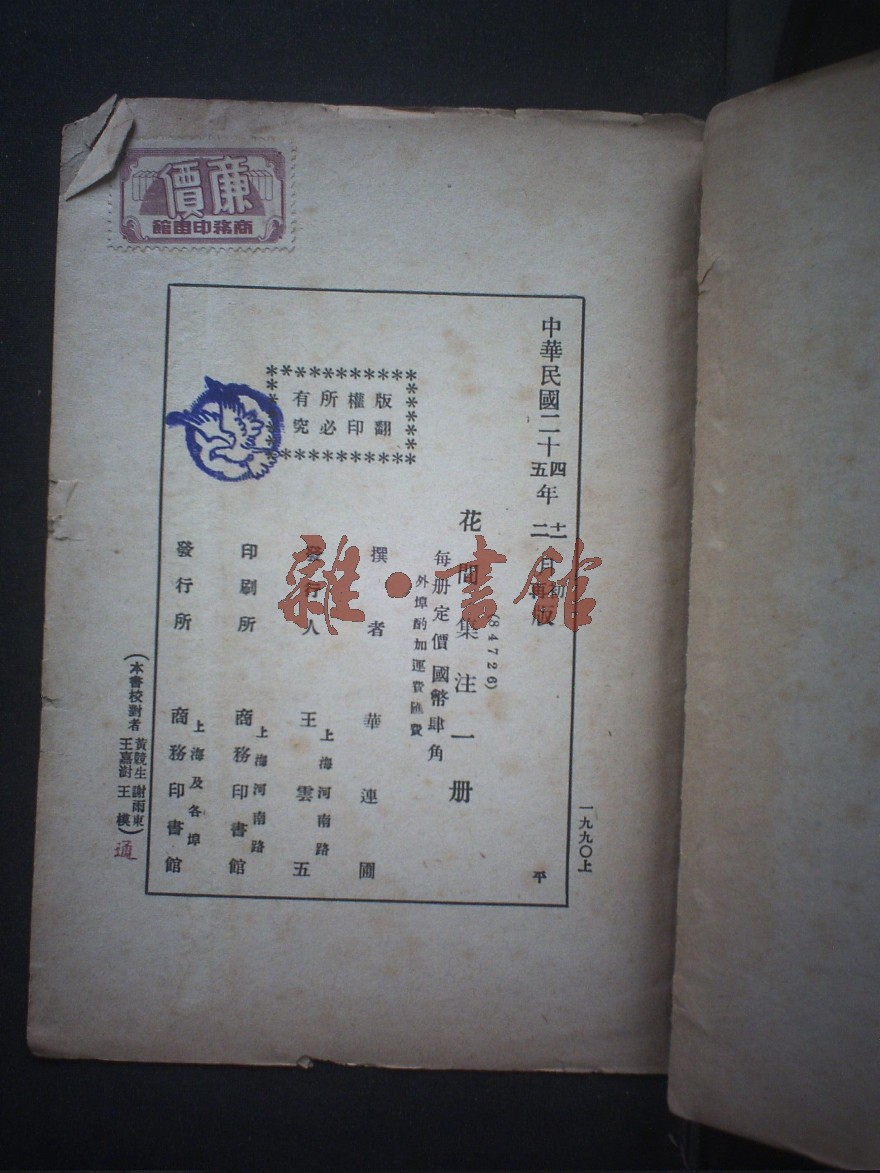 廉價
商務印書館
中華民國二十四年十二月初版
中華民國二十五年二月再版
(84726)
花間集注一册
每册定價國幣肆角
外埠酌加運費匯費
撰者 華連圃
發行人 王雲五
上海河南路
印刷所 商務印書館
上海河南路
發行所 商務印書館
上海及各埠
版權所有
翻印必究
(本書校對者 黃競生 謝雨東
王嘉澍 王樸)
通
一九九〇上
平
雜·書館